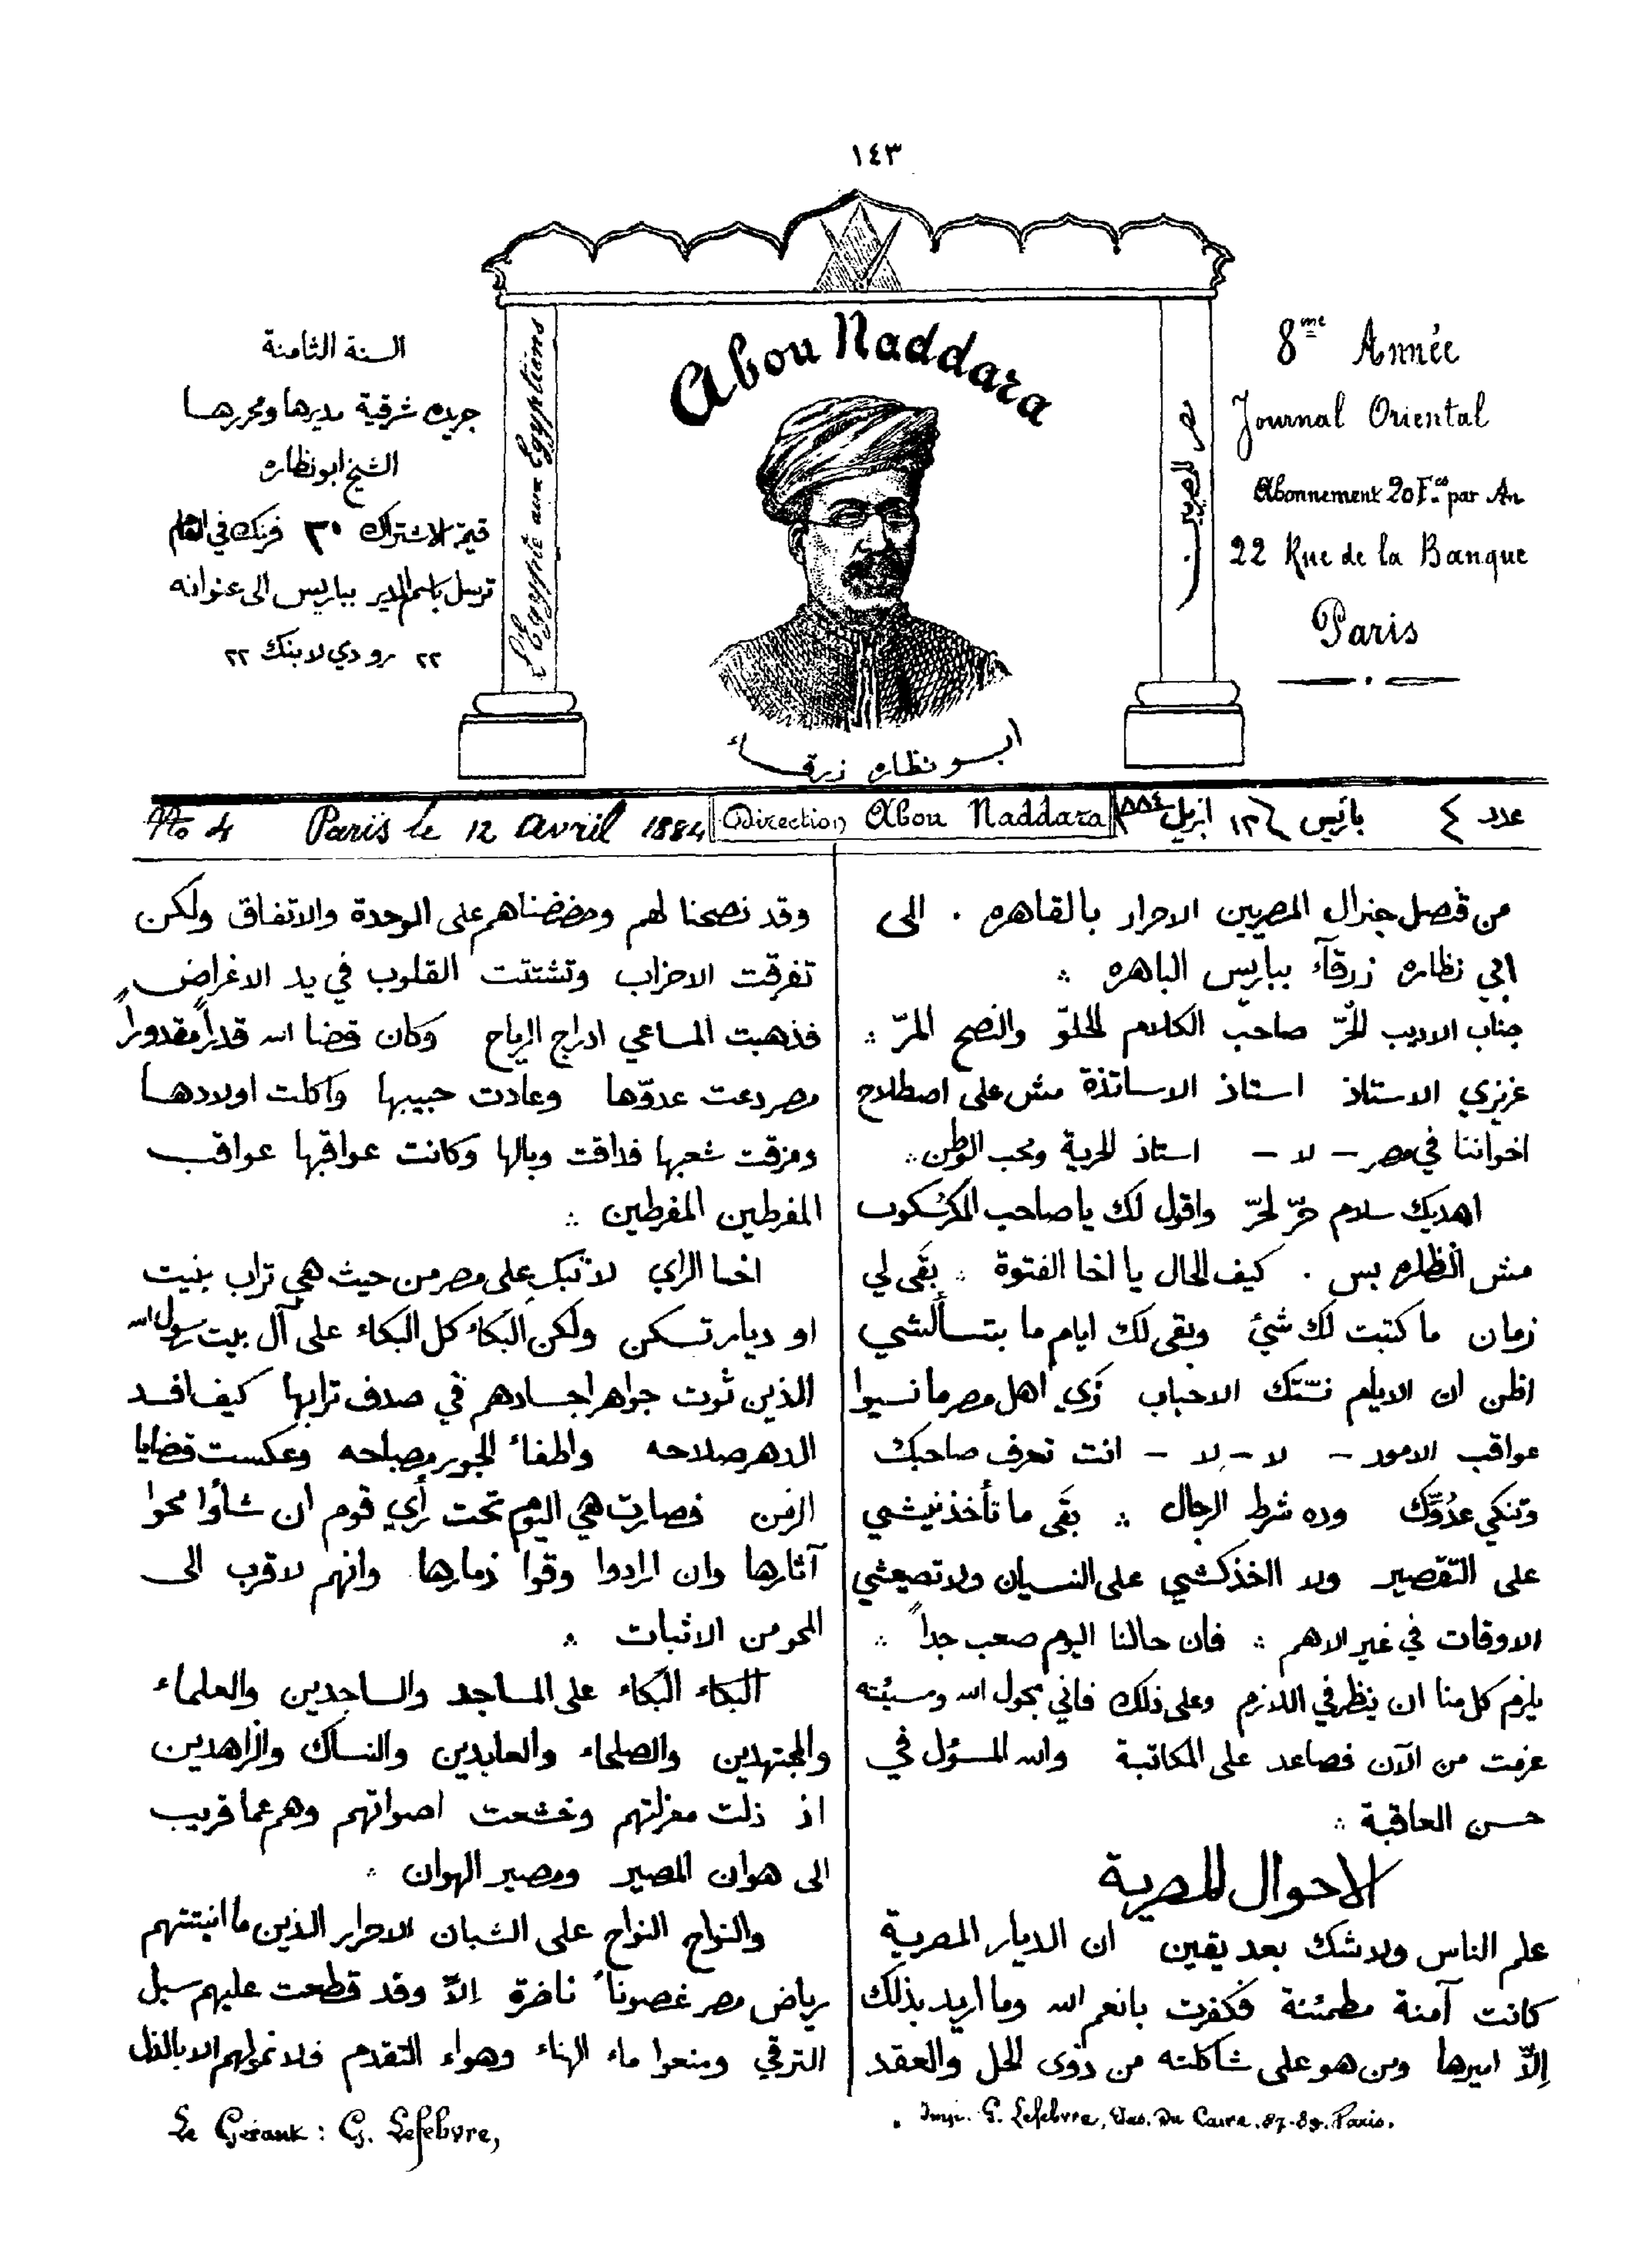 ١٤٣
Abou Naddara
L'Egypte aux Egyptiens
مصر للمصريين
ابو نظاره زرقاء
8me Année
Journal Oriental
Abonnement 20 Fcs par An
22 Rue de la Banque
Paris
السنة الثامنة
جريده شرقية مديرها ومحررها
الشيخ ابو نظاره
قيمة الاشتراك ٢٠ فرنك في العام
ترسل باسم المدير بباريس الى عنوانه
٢٢ رو دي لا بنك ٢٢
No 4 Paris le 12 Avril 1884
Direction Abou Naddara
عدد ٤ باريس في ١٢ ابريل ١٨٨٤
من قنصل جنرال المصريين الاحرار بالقاهره . الى
ابي نظاره زرقآء بباريس الباهره ∴
جناب الاديب الحُرّ صاحب الكلام الحلوّ والنصح المرّ ∴
عزيزي الاستاذ استاذ الاساتذة مش على اصطلاح
اخواننا في مصر – لا – استاذ الحرية ومحب الوطن ∴
اهديك سلام حرّ لحرّ واقول لك يا صاحب المكرسكوب
مش النظاره بس . كيف الحال يا اخا الفتوة ∴ بقى لي
زمان ما كتبت لك شئ وبقى لك ايام ما بتسألشي
اظن ان الايام نسّتك الاحباب زي اهل مصر ما نسيوا
عواقب الامور – لا – لا – انت تعرف صاحبك
وتنكي عدُوّك وده شرط الرجال ∴ بقى ما تأخذنيشي
على التقصير ولا ااخذكشي على النسيان ولا تضيعشي
الاوقات في غير الاهم ∴ فان حالنا اليوم صعب جداً ∴
يلزم كل منا ان ينظر في اللازم وعلى ذلك فاني بحول الله ومشيئته
عزمت من الآن فصاعد على المكاتبة والله المسؤل في
حسن العاقبة ∴
الاحوال المصرية
علم الناس ولا شك بعد يقين ان الديار المصرية
كانت آمنة مطمئنة فكفرت بانعم الله وما اريد بذلك
إلاّ اميرها ومن هو على شاكلته من ذوى الحل والعقد
وقد نصحنا لهم وحضضناهم على الوحدة والاتفاق ولكن
تفرقت الاحزاب وتشتتت القلوب في يد الاغراض
فذهبت المساعي ادراج الرياح وكان قضا الله قدراً مقدوراً
مصر دعت عدوّها وعادت حبيبها واكلت اولادها
ومزقت شعبها فذاقت وبالها وكانت عواقبها عواقب
المفرطين المفرطين ∴
اخا الراي لا تبك على مصر من حيث هي تراب بنيت
او ديار تسكن ولكن البكاء كل البكاء على آل بيت رسول الله
الذين ثوت جواهر اجسادهم في صدف ترابها كيف افسد
الدهر صلاحه واطفاء الجور مصباحه وعكست قضايا
الزمن فصارت هي اليوم تحت رأي قوم ان شأوا محوا
آثارها وان ارادوا وقوا ذمارها وانهم لاقرب الى
المحو من الاثبات ∴
البكاء البكاء على المساجد والساجدين والعلماء
والمجتهدين والصلحاء والعابدين والنساك والزاهدين
اذ ذلت منزلتهم وخشعت اصواتهم وهم عما قريب
الى هوان المصير ومصير الهوان ∴
والنواح النواح على الشبان الاحرار الذين ما انبتتهم
رياض مصر غصوناً ناضرة إلاّ وقد قطعت عليهم سبل
الترقي ومنعوا ماء الهناء وهواء التقدم فلا نمو لهم الا بالذل
Le Gérant : G. Lefebvre,
Imp. G. Lefebvre, Pas. Du Caire. 87-89. Paris.